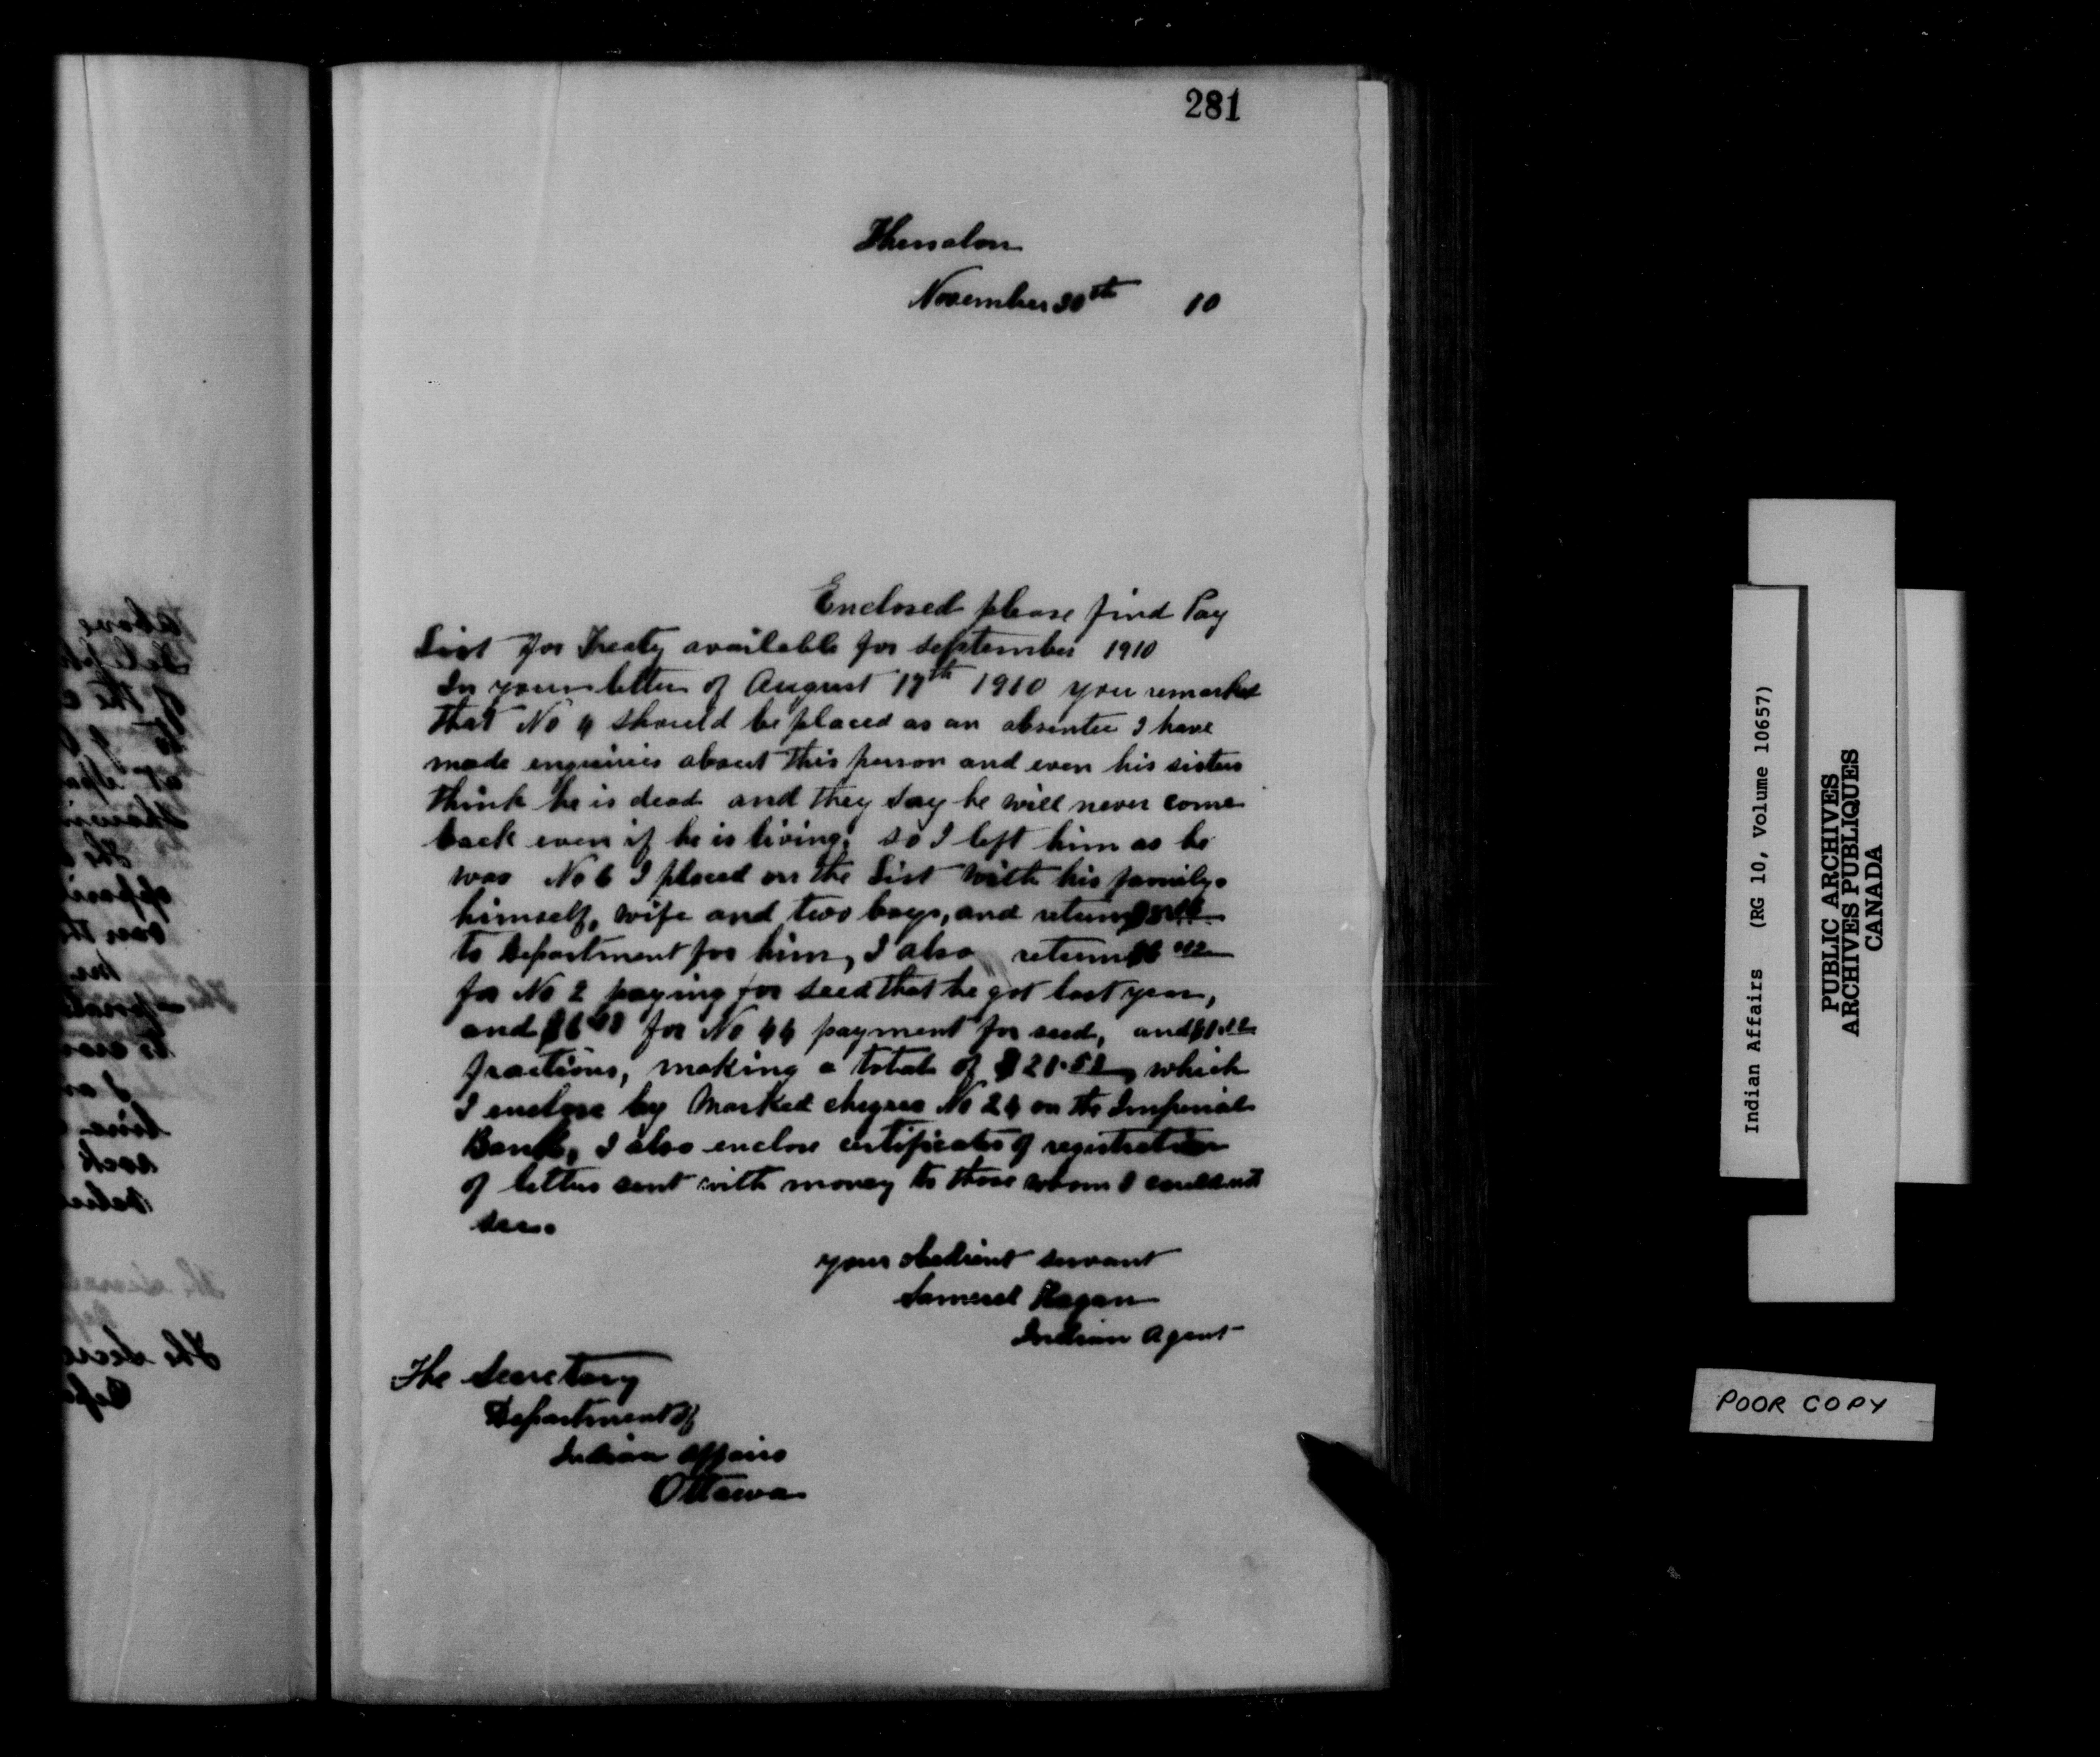 281
Thessalon
November 30th 10
Enclosed please find Pay
List for Treaty available for September 1910
In your letter of August 17th 1910 you remarked
that No 4 should be placed as an absentee I have
made enquiries about this person and even his sisters
think he is dead and they say he will never come
back even if he is living, so I left him as he
was No 6 I placed on the List with his family.
himself, wife and two boys, and return
to Department for him, I also return
for No 2 paying for seed that he got last year,
and for No 44 payment for seed, and
fractions, making a total of which
I enclose by Marked cheque No 24 on the Imperial
Bank, I also enclose certificates of registration
of letters sent with money to those whom I could not
see.
your obedient servant
Samuel Hagan
Indian Agent
The Secretary
Department of
Indian Affairs
Ottawa
Indian Affairs (RG 10, Volume 10657)
PUBLIC ARCHIVES
ARCHIVES PUBLIQUES
CANADA
POOR COPY